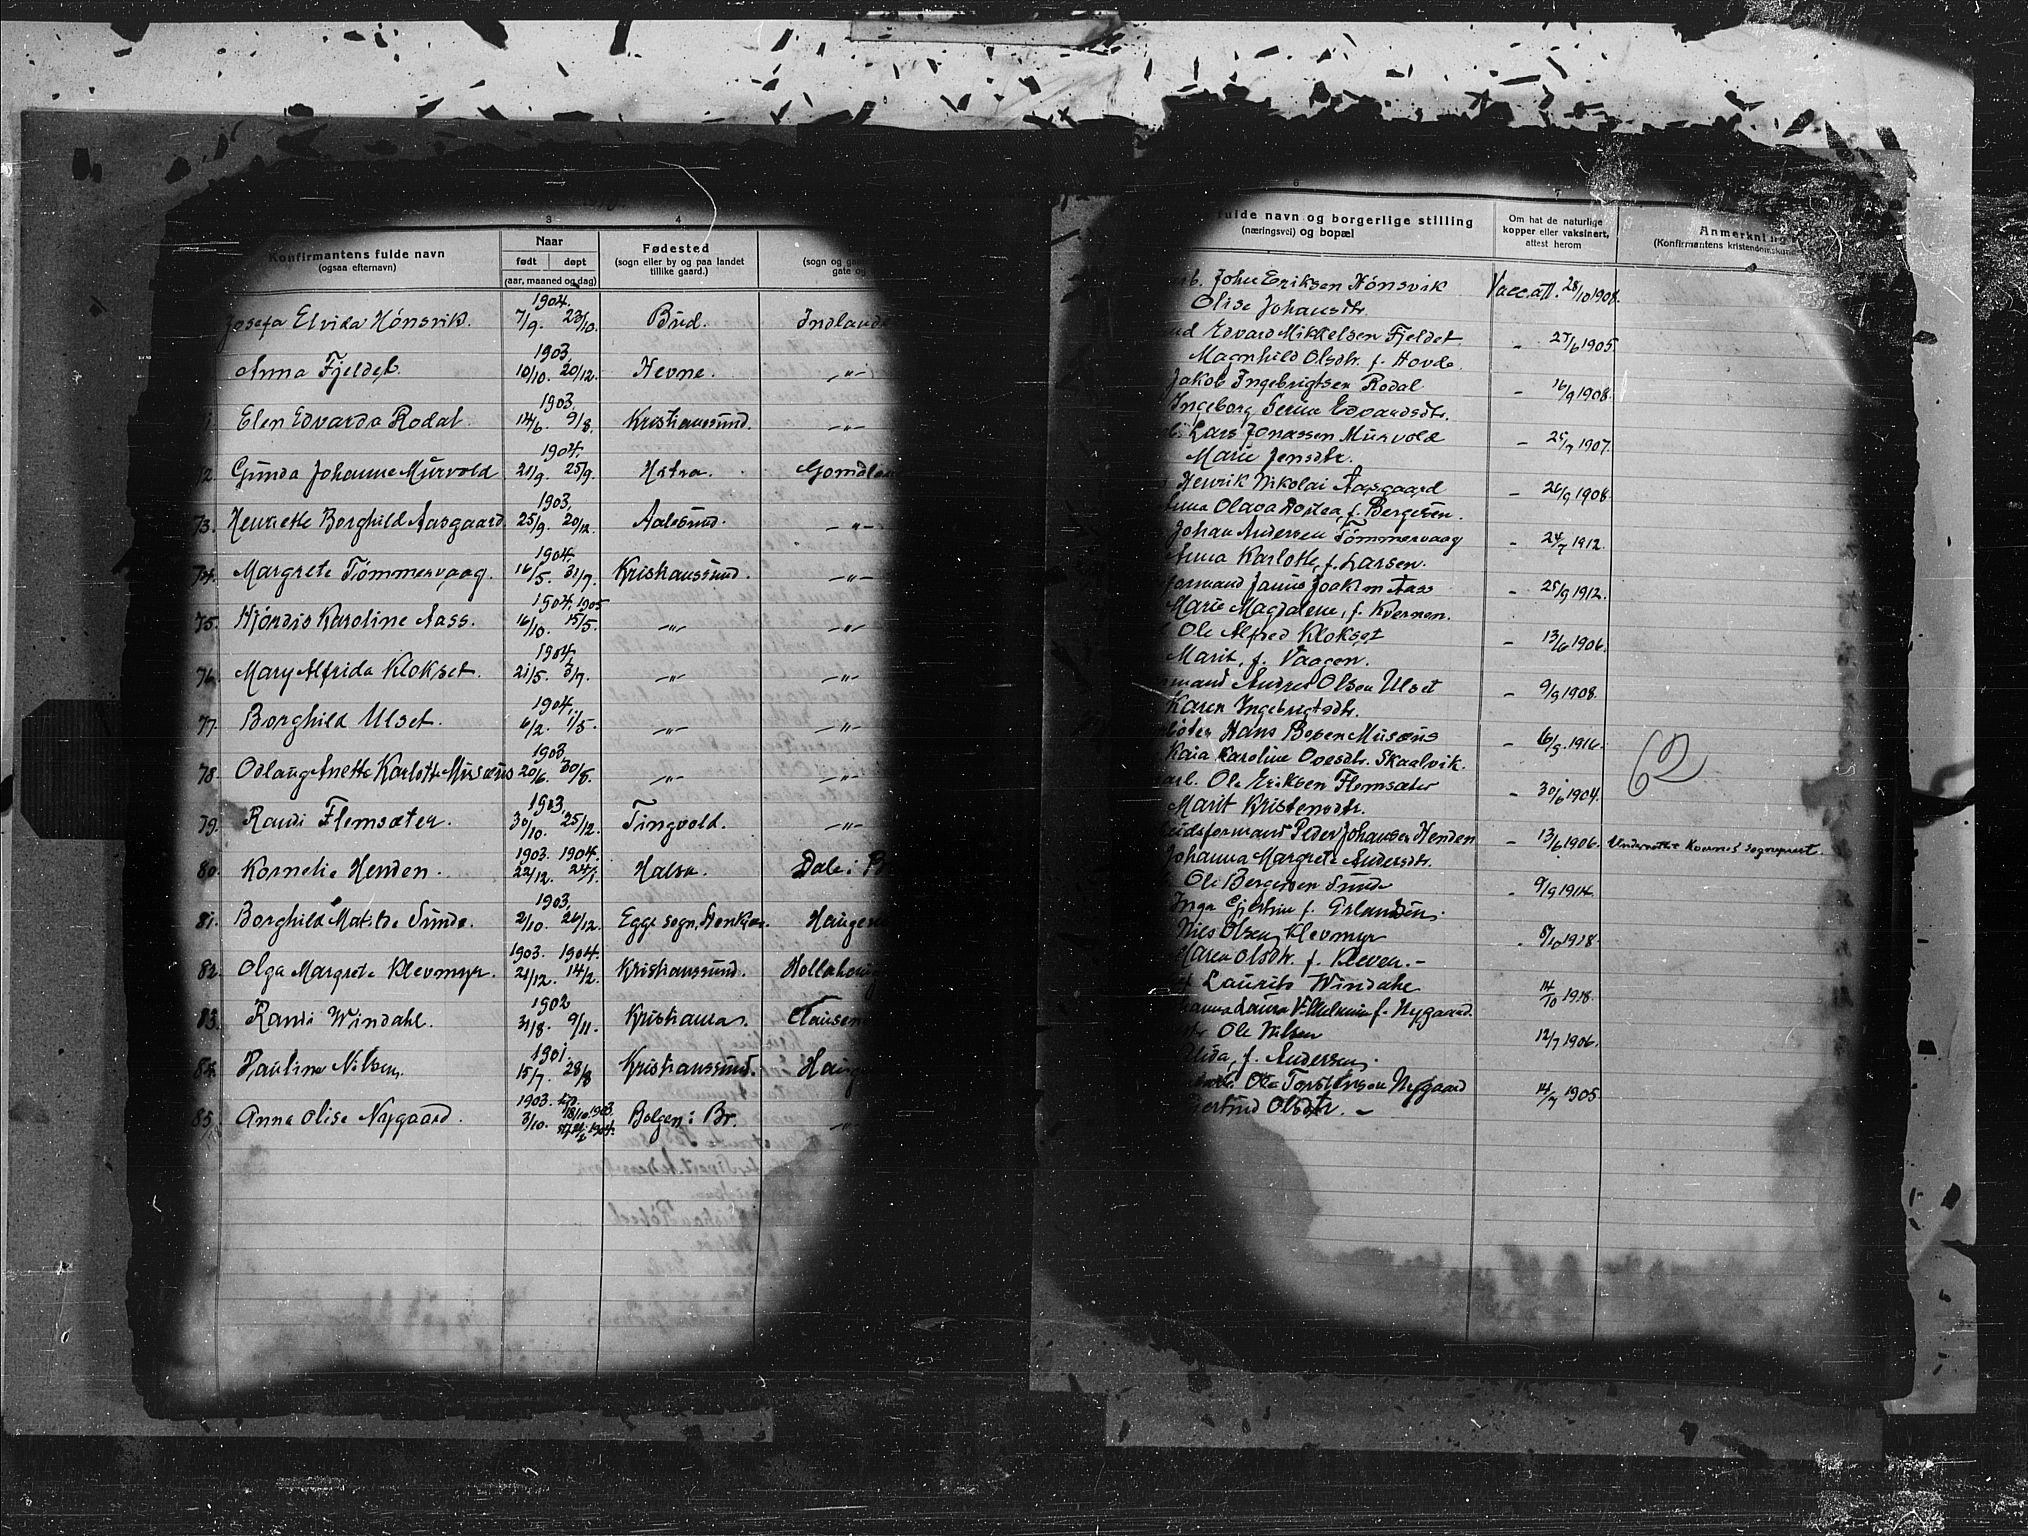 3
4
Konfirmantens fulde navn
(ogsaa efternavn)
Naar
født
døpt
(aar, maaned og dag)
Fødested
(sogn eller by og paa landet
tillike gaard.)
(sogn og
gate og
1904.
Josefa Elvida Hønsvik. 7/9. 23/10. Bud. Indlande
1903.
Anna Fjeldet. 10/10. 20/12. Hevne. -"-
1903.
Elen Edvarda Rodal. 14/6. 9/8. Kristianssund. -"-
1904.
Gunda Johanne Murvold 21/9. 25/9. Gomalan
1903.
73. Henriette Borghild Aasgaard. 25/9. 20/12. Aalesund. -"-
1904.
74. Margrete Tømmervaag. 16/5. 31/7. Kristianssund. -"-
1904. 1905
75. Hjördis Karoline Aass. 16/10. 15/5. -"- -"-
1904.
76. Mary Alfrida Klokset. 21/5. 3/7. -"- -"-
1904.
77. Borghild Ulset. 6/2. 1/5. -"- -"-
1903.
78. Odlaug Anette Karlotte Musæus 20/6. 30/8. -"- -"-
1903.
79. Randi Flemsæter. 30/10. 25/12. Tingvold. -"-
1903. 1904.
80. Kornelie Henden. 22/12. 24/1. Halsa. Dale i B
1903.
81. Borghild Matilde Sunde. 2/10. 26/12. Egge sogn, Stenkjær. Hauges
1903. 1904.
82. Olga Margrete Klevmyr. 21/12. 14/2. Kristianssund.
1902
83. Randi Windahl. 31/8. 9/11. Kristianss. Clausen
1901.
84. Pauline Nilsen. 15/7. 28/8 Kristianssund. Haug
1903. 18/10 1903.
85. Anna Olise Nygaard. 3/10. 1904. Bolgen i Br. -"-
6
7
fulde navn og borgerlige stilling
(næringsvei) og bopæl
Om hat de naturlige
kopper eller vaksinert,
attest herom
Anmerkning
(Konfirmantens kristendomskund
Johs Eriksen Hønsvik Vacc.att. 28/10 1908.
Olise Johansdtr.
Edvard Mikkelsen Fjeldet - 27/6 1905.
Magnhild Olsdtr. f. Hovde.
Jakob Ingebrigtsen Rodal - 16/9 1908.
Ingeborg Serine Edvardsdtr.
Lars Jonassen Murvold - 25/9 1907.
Marie Jensdtr.
Henrik Nikolai Aasgaard - 26/9 1908.
Olava f. Bergesen.
Johan Andersen Tømmervaag - 24/7 1912.
Anna Karlotte, f. Larsen.
formand Janus Joakim Aass - 25/9 1912.
Marie Magdalene, f. Kvernen.
Ole Alfred Klokset - 13/6 1906.
Marit, f. Vaagen.
mand Andreas Olsen Ulset - 9/9 1908.
Karen Ingebrigtsdtr.
Hans Boyen Musæus - 6/9. 1916.
Kaia Karoline Ovesdtr. Skaalvik.
62
Ole Eriksen Flemsæter - 30/6 1904.
Marit Kristensdtr.
eidsformand Peder Johansen Henden - 13/6 1906.
Johanna Margrete Andersdtr.
Ole Bergersen Sunde - 9/9 1914.
Inga Gjertrine f. Erlandsen.
Nils Olsen Klevmyr - 5/10 1918.
Maren Olsdtr. f. Kleven. -
Laurits Windahl 14/10 1918.
Laura Vilhelmine f. Nygaard.
Ole Nilsen 12/7 1906.
Alida, f. Andersen.
Ole Torstensen Nygaard 14/7 1905
Gjertrud Olsdtr. -